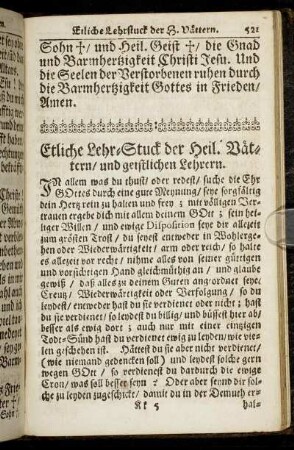 Etliche Lehrstuck der H. Vättern. 521
Sohn †/ und Heil. Geist †/ die Gnad
und Barmhertzigkeit Christi Jesu. Und
die Seelen der Verstorbenen ruhen durch
die Barmhertzigkeit Gottes in Frieden/
Amen.
Etliche Lehr-Stuck der Heil. Vät-
tern/ und geistlichen Lehrern.
IN allem was du thust/ oder redest/ suche die Ehr
GOttes durch eine gute Meynung/ seye sorgfältig
dein Hertz rein zu halten und frey; mit völligen Ver-
trauen ergebe dich mit allem deinem GOtt; sein hei-
liger Willen/ und ewige Disposition seye dir allezeit
zum grösten Trost/ du seyest entweder in Wohlerge-
hen oder Wiederwärtigkeit/ arm oder reich/ so halte
es allezeit vor recht/ nihme alles von seiner gütigen
und vorsichtigen Hand gleichmüthig an/ und glaube
gewiß/ daß alles zu deinem Guten angeordnet seye:
Creutz/ Wiederwärtigkeit oder Verfolgung/ so du
leydest/ entweder hast du sie verdienet oder nicht; hast
du sie verdienet/ so leydest du billig/ und büssest hier ab/
besser als ewig dort; auch nur mit einer eintzigen
Todt-Sünd hast du verdienet ewig zu leyden/ wie vie-
len geschehen ist. Hättest du sie aber nicht verdienet
(wie niemand gedencken soll) und leydest solche gern
wegen GOtt/ so verdienest du dardurch die ewige
Cron/ was soll besser seyn? Oder aber seynd dir sol-
che zu leyden zugeschickt/ damit du in der Demuth er-
Kk 5 hal-